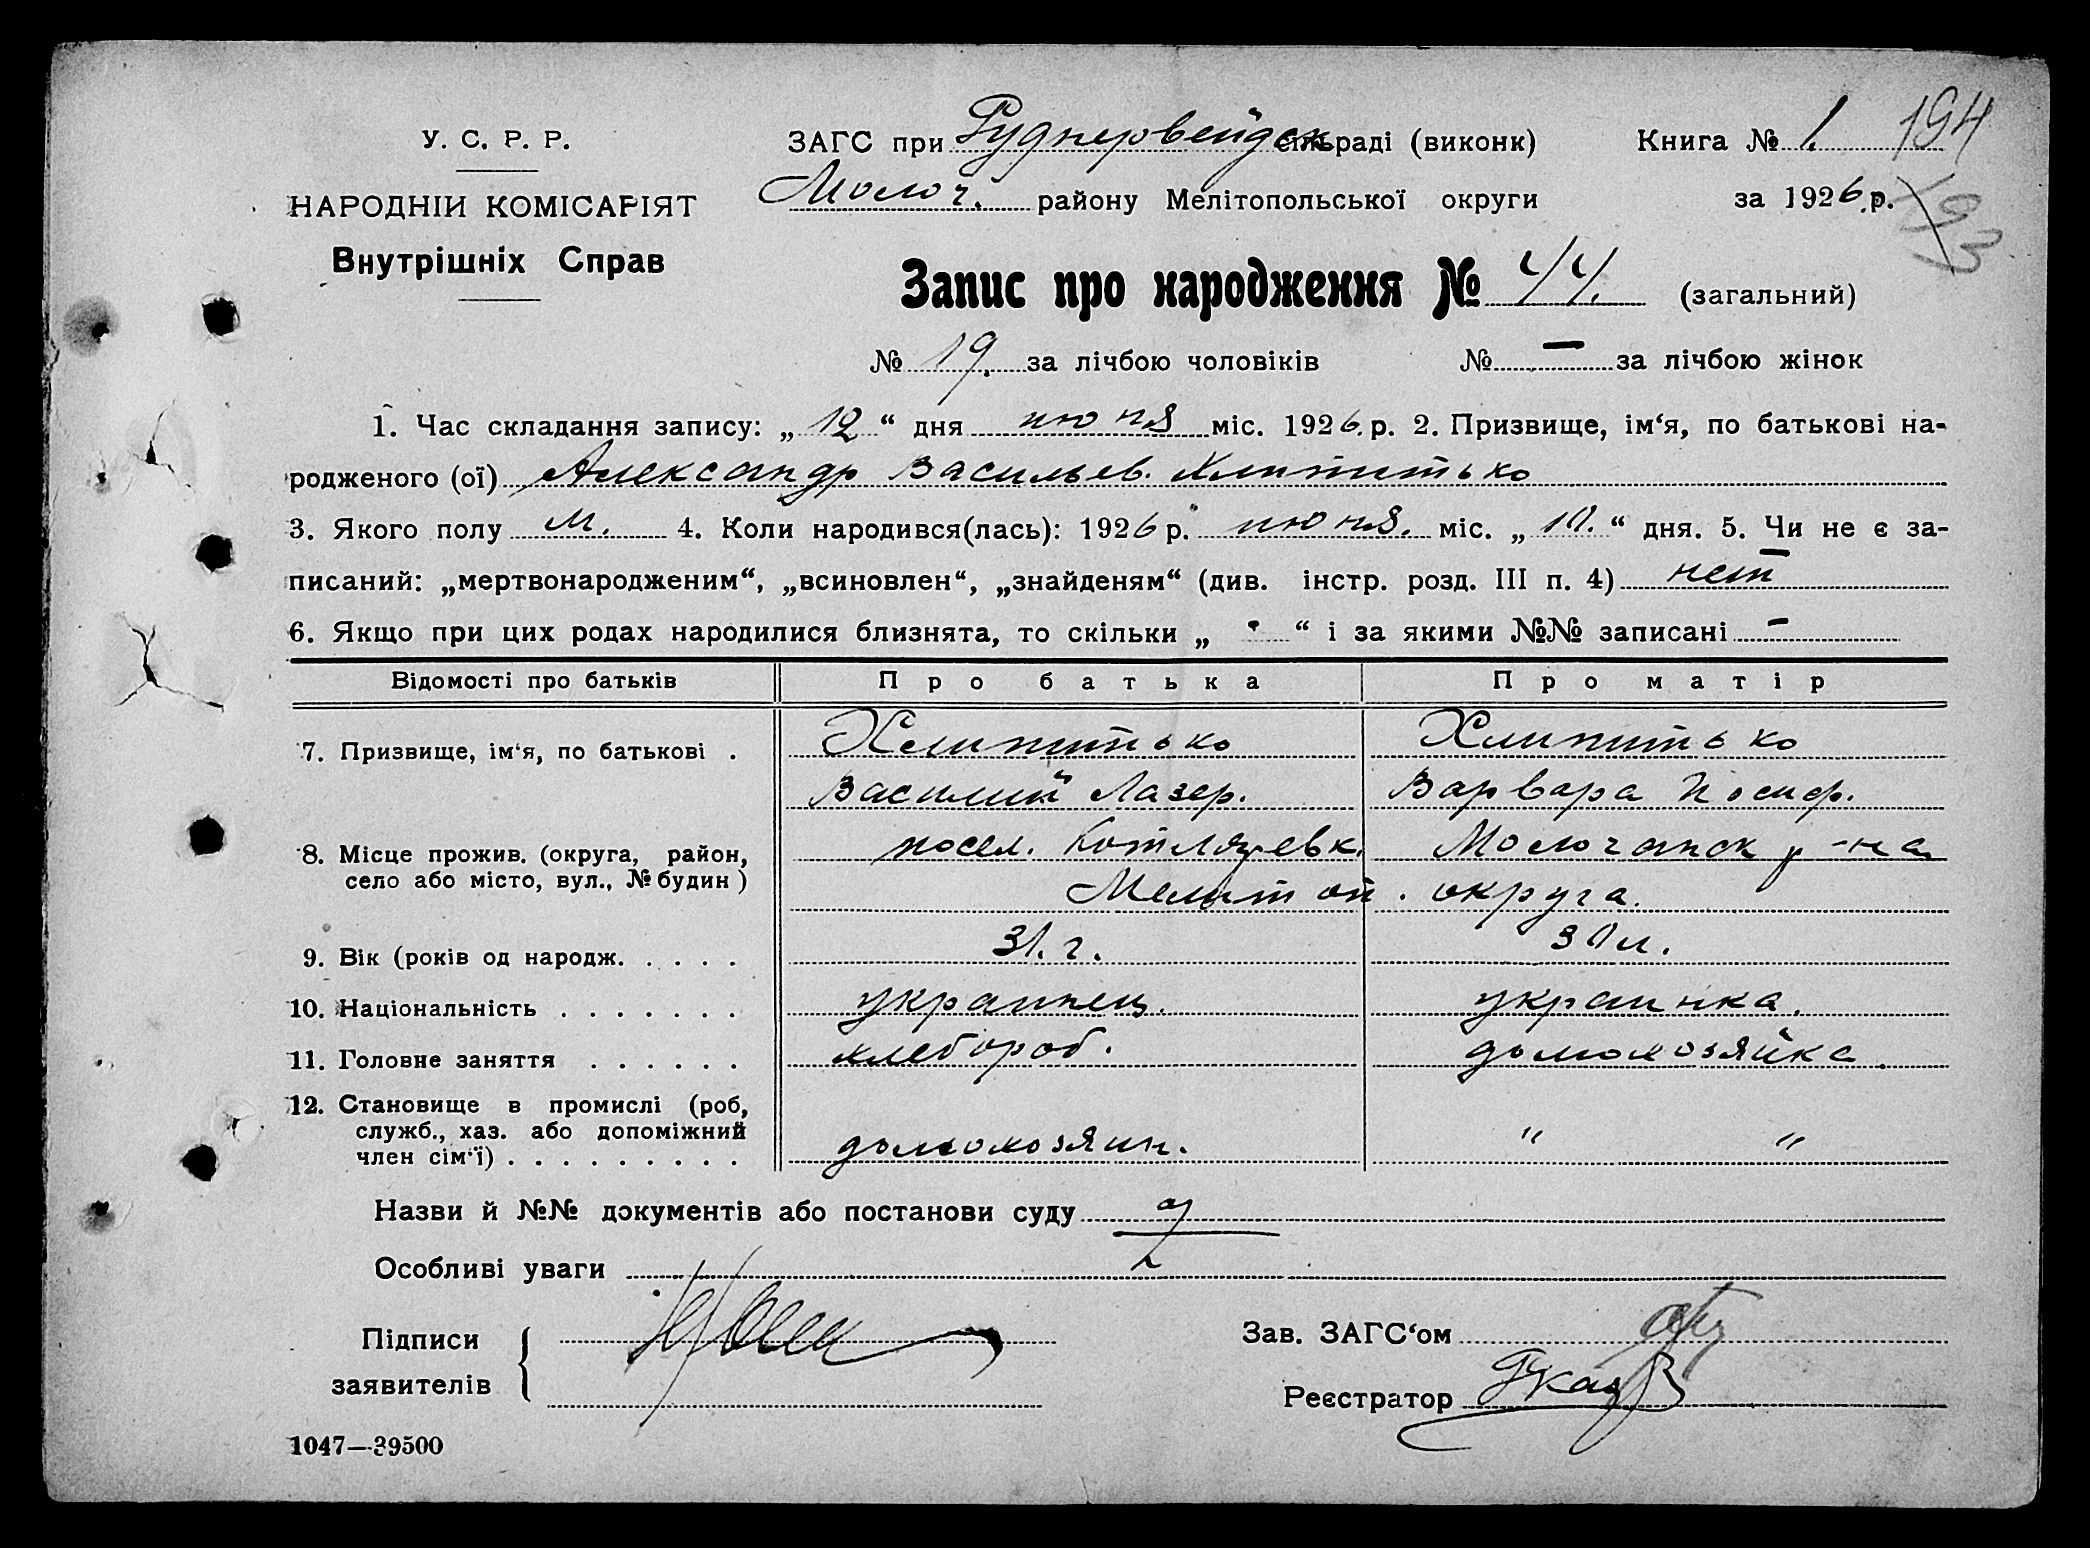 У. С. Р. Р.
НАРОДНІЙ КОМІСАРІЯТ
Внутрішніх Справ
ЗАГС при Руднервейдск сільраді (виконк)
Молоч. району Мелітопольської округи
Книга № 1. 194
за 1926 р. 193
Запис про народження № 44. (загальний)
№ 19. за лічбою чоловіків № — за лічбою жінок
1. Час складання запису: „ 12 “ дня июня міс. 1926 р. 2. Призвище, ім‘я, по батькові на-
родженого (ої) Александр Васильев. Хлипитько
3. Якого полу м. 4. Коли народився(лась): 1926 р. июня. міс. „ 10. “ дня. 5. Чи не є за-
писаний: „мертвонародженим“, „всиновлен“, „знайденям“ (див. інстр. розд. III п. 4) нет
6. Якщо при цих родах народилися близнята, то скільки „ “ і за якими №№ записані -
Відомості про батьків Про батька Про матір
7. Призвище, ім‘я, по батькові . Хлипитько Хлипитько
Василий Лазер. Варвара Иосиф.
8. Місце прожив. (округа, район, посел. Котляревк. Молочанск р-на
село або місто, вул., № будин) Мелитоп. округа.
9. Вік (років од народж. . . . . 31. г. 30 л.
10. Національність . . . . . . . украинец. украинка.
11. Головне заняття . . . . . . хлебороб. домохозяйка.
12. Становище в промислі (роб,
служб., хаз. або допоміжний
член сім‘ї) . . . . . . . . . домохозяин. " "
Назви й №№ документів або постанови суду
Особливі уваги
Підписи
заявителів
Зав. ЗАГС‘ом
Реєстратор
1047—39500